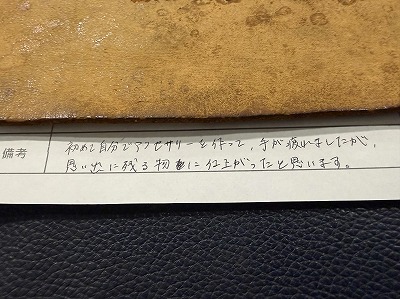 備考
初めて自分でアクセサリーを作って、手が疲れましたが、
思い出に残る物に仕上がったと思います。